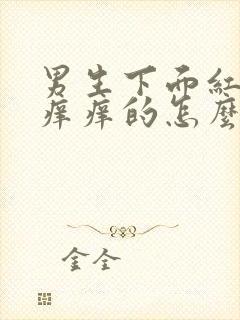 男生下面红
痒痒的怎麼
金全